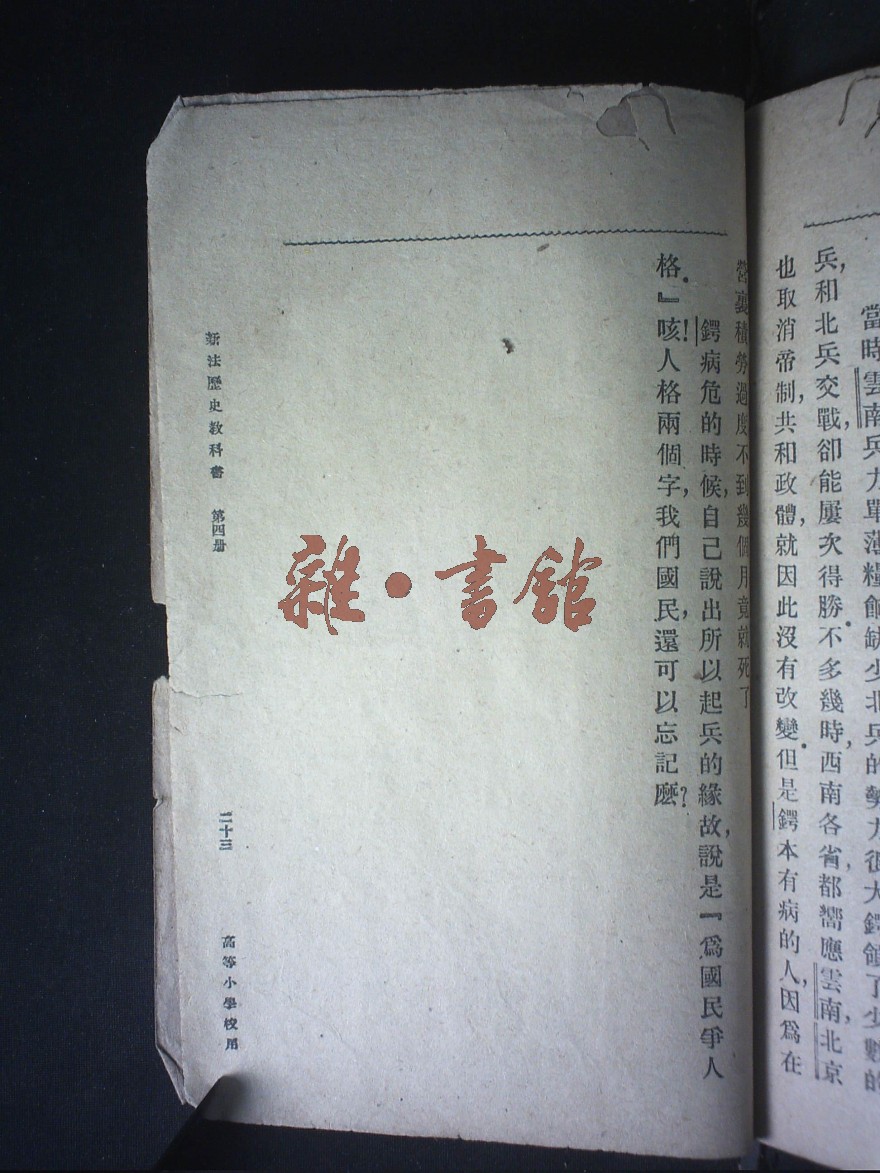 當時雲南兵力單薄糧餉缺少北兵的勢力很大鍔領了少數的
兵，和北兵交戰，卻能屢次得勝．不多幾時，西南各省，都響應雲南，北京
也取消帝制，共和政體，就因此沒有改變．但是鍔本有病的人，因爲在
營裏積勞過度不到幾個月竟就死了
鍔病危的時候，自己說出所以起兵的緣故，說是『爲國民爭人
格．』咳！人格兩個字，我們國民，還可以忘記麽？
新法歷史教科書 第四册 二十三 高等小學校用
雜·書館